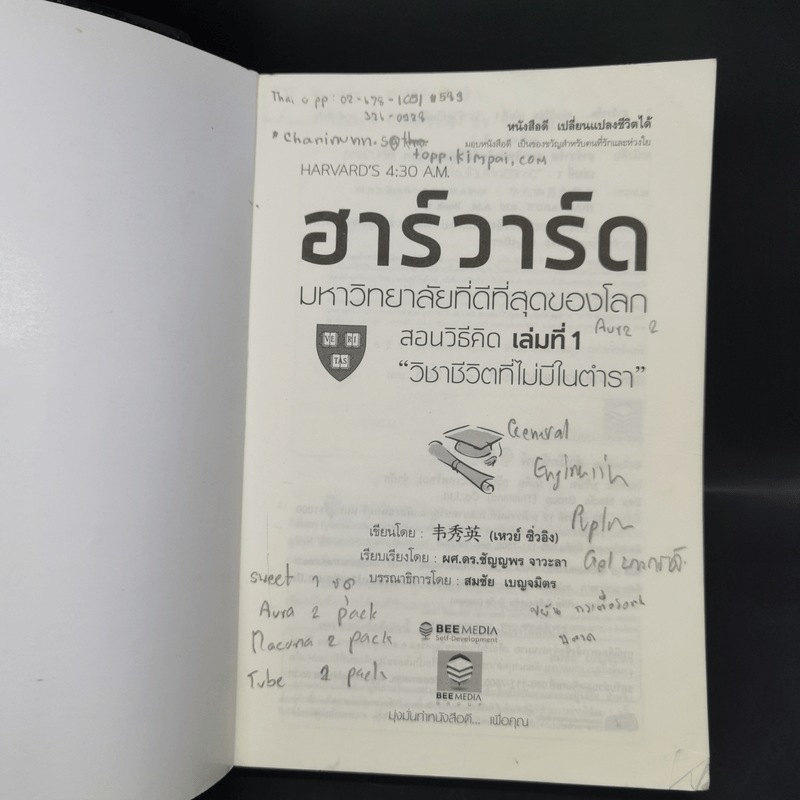 Thai o pp: 02-678-1051 # 589
321-0028
หนังสือดี เปลี่ยนแปลงชีวิตได้
มอบหนังสือดี เป็นของขวัญสำหรับคนที่รักและห่วงใย
topp.kimpai.com
HARVARD'S 4:30 A.M.
ฮาร์วาร์ด
มหาวิทยาลัยที่ดีที่สุดของโลก
VE RI
TAS
สอนวิธีคิด เล่มที่ 1
Aura 2
“วิชาชีวิตที่ไม่มีในตำรา”
General
เขียนโดย : 韦秀英 (เหวย์ ซิ่วอิง)
เรียบเรียงโดย : ผศ.ดร.ชัญญพร จาวะลา
Gel
บรรณาธิการโดย : สมชัย เบญจมิตร
sweet 1 ชุด
Aura 2 pack
Macuna 2 pack
Tube 2 pack
BEE MEDIA
Self-Development
BEE MEDIA
GROUP
มุ่งมั่นทำหนังสือดี... เพื่อคุณ